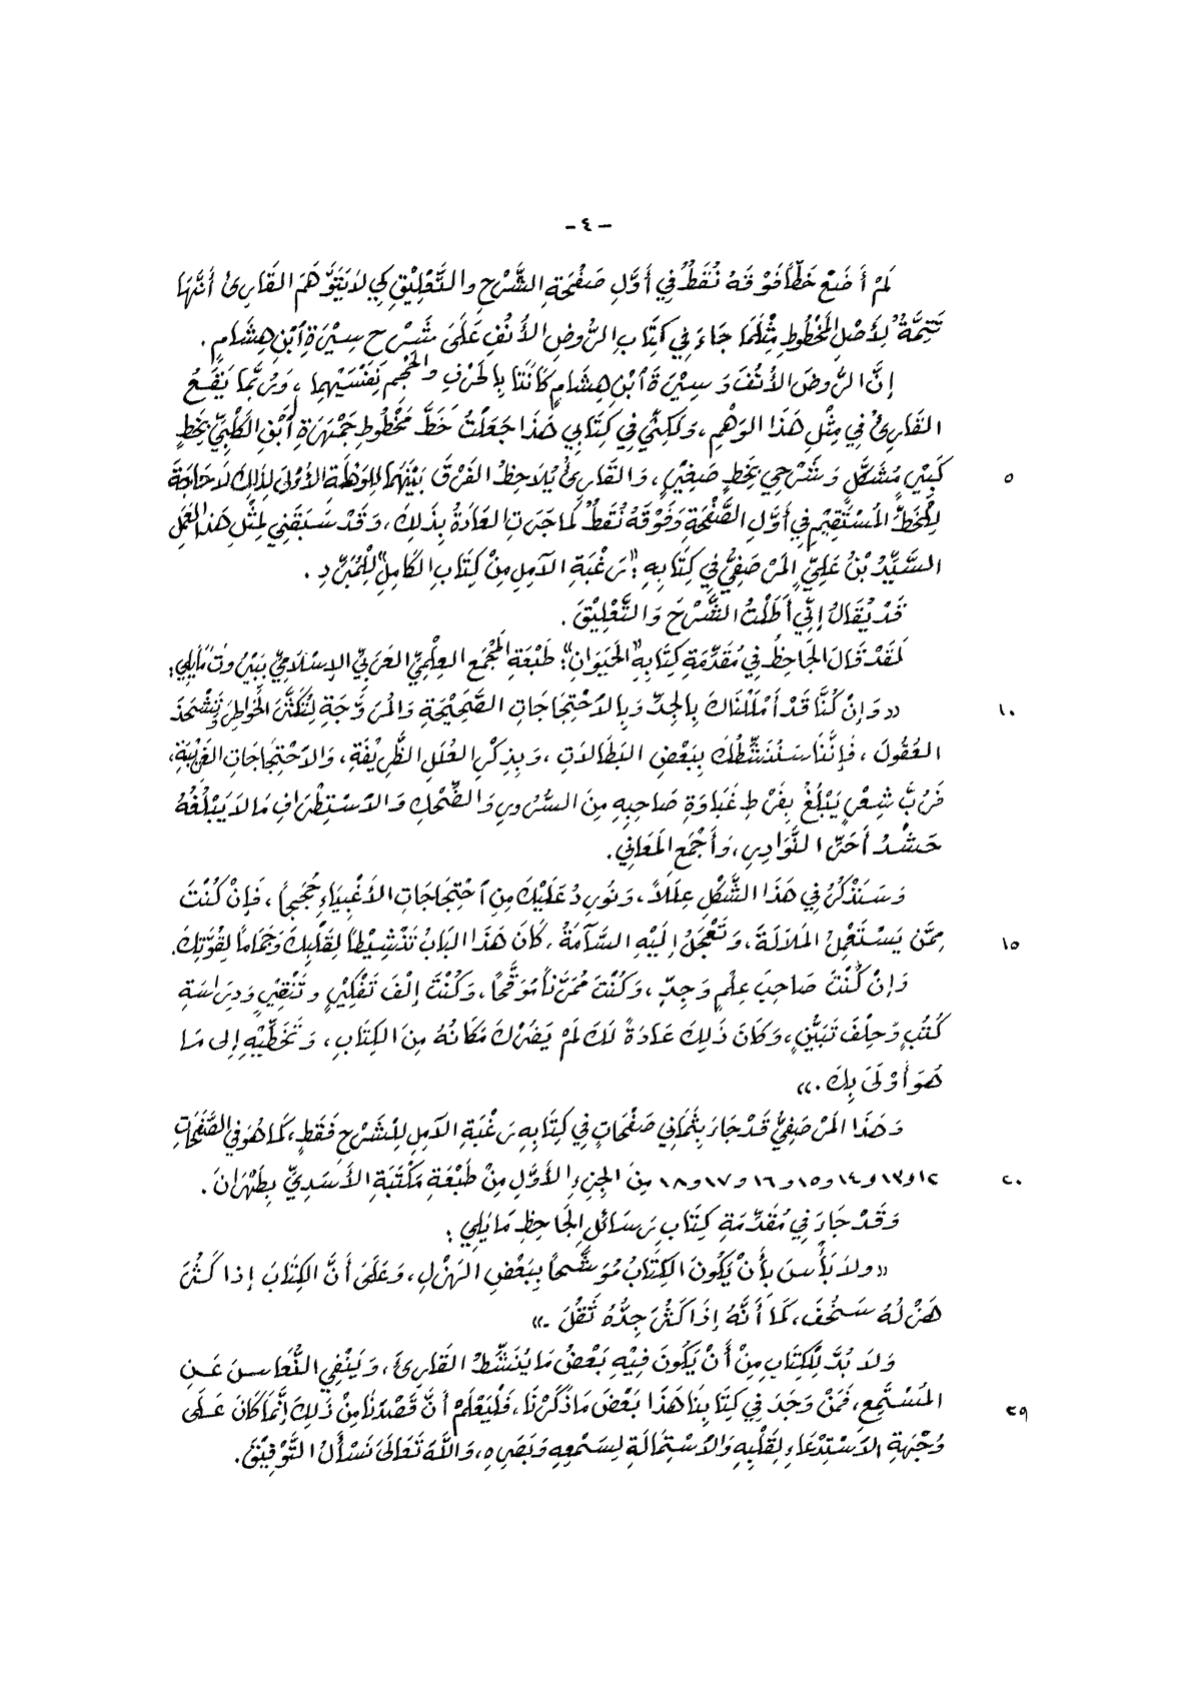 - ٤ -
لَمْ أَضَعْ خَطّاً فَوْقَهُ نُقَطٌ فِي أَوَّلِ صَفْحَةِ الشَّرْحِ والتَّعْلِيْقِ كِي لاَيَتَوَّهَمَ القَارِئُ أَنَّهَا
تَتِمَّةٌ لِأَصْلِ المَخْطُوطِ مِثْلَمَا جَاءَ فِي كِتَابِ الرَّوضِ الأُنُفِ عَلَى شَرْحِ سِيْرَةِ ابْنِ هِشَامٍ .
إِنَّ الرَّوضَ الأُنُفَ وَسِيْرَةَ ابْنِ هِشَامٍ كَانَتَا بِالحَرْفِ والحَجْمِ نَفْسَيْهِمَا ، وَرُبَّمَا يَقَعُ
القَارِئُ فِي مِثْلِ هَذَا الوَهْمِ ، وَلَكِنِّي فِي كِتَابِي هَذَا جَعَلْتُ خَطَّ مَخْطُوطِ جَمْهَرَةِ ابْنِ الكَلْبِيِّ بِخَطٍّ
٥ كَبِيْرٍ مُشَكَّلٍ وَشَرْحِي بِخَطٍ صَغِيْرٍ ، وَالقَارِئُ يُلاَحِظُ الفَرْقَ بَيْنَهُمَا لِلوَهْلَةِ الأُوْلَى لِذَلِكَ لاَحَاجَةَ
لِلْخَطِّ المُسْتَقِيْمِ فِي أَوَّلِ الصَّفْحَةِ وَفَوْقَهُ نُقَطٌ كَمَا جَرَتِ العَادَةُ بِذَلِكَ ، وَقَدْ سَبَقَنِي لِمِثْلِ هَذَا العَمَلِ
السَّيِّدُ بْنُ عَلِيٍّ المَرْصَفِيُّ فِي كِتَابِهِ : "رَغْبَةِ الآمِلِ مِنْ كِتَابِ الكَامِلِ" لِلْمُبَرِّدِ .
قَدْ يُقَالُ إِنِّي أَطَلْتُ الشَّرْحَ وَالتَّعْلِيْقَ .
لَقَدْ قَالَ الجَاحِظُ فِي مُقَدِّمَةِ كِتَابِهِ "الحَيَوَانِ" : طَبْعَةِ المَجْمَعِ العِلْمِيِّ العَرَبِيِّ الإِسْلاَمِيِّ بَبَيْرُوتَ مَايَلِي :
١٠ «وَإِنْ كُنَّا قَدْ أَمْلَلْنَاكَ بِالجِدِّ وَبِالاَحْتِجَاجَاتِ الصَّحِيْحَةِ وَالمُرَوَّجَةِ لِتُكَثِّرَ الخَوَاطِرَ وَتُشْحَذَ
العُقُولَ ، فَإِنَّنَا سَنُنَشِّطُكَ بِبَعْضِ البَطَالاَتِ ، وَبِذِكْرِ العُلَلِ الظَّرِيْفَةِ ، وَالاَحْتِجَاجَاتِ الغَرِيْبَةِ ،
فَرُبَّ شِعْرٍ يَبْلُغُ بِفَرْطِ غَبَاوَةِ صَاحِبِهِ مِنَ السُّرُورِ وَالضَّحْكِ وَالاَسْتِطْرَافِ مَالاَيَبْلُغُهُ
حَشْدُ أَحَرِّ النَّوَادِرِ ، وَأَجْمَعِ المَعَانِي .
وَسَنَذْكُرُ فِي هَذَا الشَّكْلِ عِلَلاً ، وَنُورِدُ عَلَيْكَ مِنِ احْتِجَاجَاتِ الأَغْبِيَاءِ حُجَجاً ، فَإِنْ كُنْتَ
١٥ مِمَّنْ يَسْتَعْمِلُ المَلاَلَةَ ، وَتَعْجَلُ إِلَيْهِ السَّآمَةُ ، كَانَ هَذَا البَابُ تَنْشِيْطاً لِقَلْبِكَ وَجَمَاماً لِقُوَّتِكَ .
وَإِنْ كُنْتَ صَاحِبَ عِلْمٍ وَجِدٍّ ، وَكُنْتَ مُمَرَّناً مُوَقَّحاً ، وَكُنْتَ إِلْفَ تَفْكِيْرٍ وتَنْقِيْرٍ وَدِرَاسَةِ
كُتُبٍ وَحِلْفَ تَبَيُّنٍ ، وَكَانَ ذَلِكَ عَادَةً لَكَ لَمْ يَضُرَّكَ مَكَانُهُ مِنَ الكِتَابِ ، وَتَخَطِّيْهِ إِلى مَا
هَوَ أَوْلَى بِكَ .»
وَهَذَا المَرْصَفِيُّ قَدْ جَاءَ بِثَمَانِي صَفْحَاتٍ فِي كِتَابِهِ رَغْبَةِ الآمِلِ لِلشَّرْحِ فَقَطْ ، كَمَا هُوَ فِي الصَّفَحَاتِ
٢٠ ١٢ و١٣ و١٤ و١٥ و١٦ و١٧ و١٨ مِنَ الجِزءِ الأَوَّلِ مِنْ طَبْعَةِ مَكْتَبَةِ الأَسَدِيِّ بِطَهْرَانَ .
وَقَدْ جَاءَ فِي مُقَدِّمَةِ كِتَابِ رَسَائلِ الجَاحِظِ مَايَلِي :
«ولاَبَأْسَ بِأَنْ يَكُونَ الكِتَابُ مُوَشَّحاً بِبَعْضِ الهَزْلِ ، وَعَلَى أَنَّ الكِتَابَ إذا كَثُرَ
هَزْلُهُ سَخُفَ ، كَمَا أَنَّهُ إِذَا كَثُرَ جِدُّهُ ثَقُلَ .»
وَلاَ بُدَّ لِلْكِتَابِ مِنْ أَنْ يَكُونَ فِيْهِ بَعْضُ مَا يُنَشِّطُ القَارِئَ ، وَيَنْفِي النُّعَاسَ عَنِ
٢٥ المُسْتَمِعِ ، فَمَنْ وَجَدَ فِي كِتَابِنَا هَذَا بَعْضَ مَاذَكَرْنَا ، فَلْيَعْلَمْ أَنَّ قَصْدَنَا مِنْ ذَلِكَ إِنَّمَا كَانَ عَلَى
وُجْهَةِ الاَسْتِدْعَاءِ لِقَلْبِهِ وَالاَسْتِمَالَةِ لِسَمْعِهِ وَبَصَرِهِ ، وَاللَّهَ تَعَالَى نَسْأَلُ التَّوْفِيْقَ .